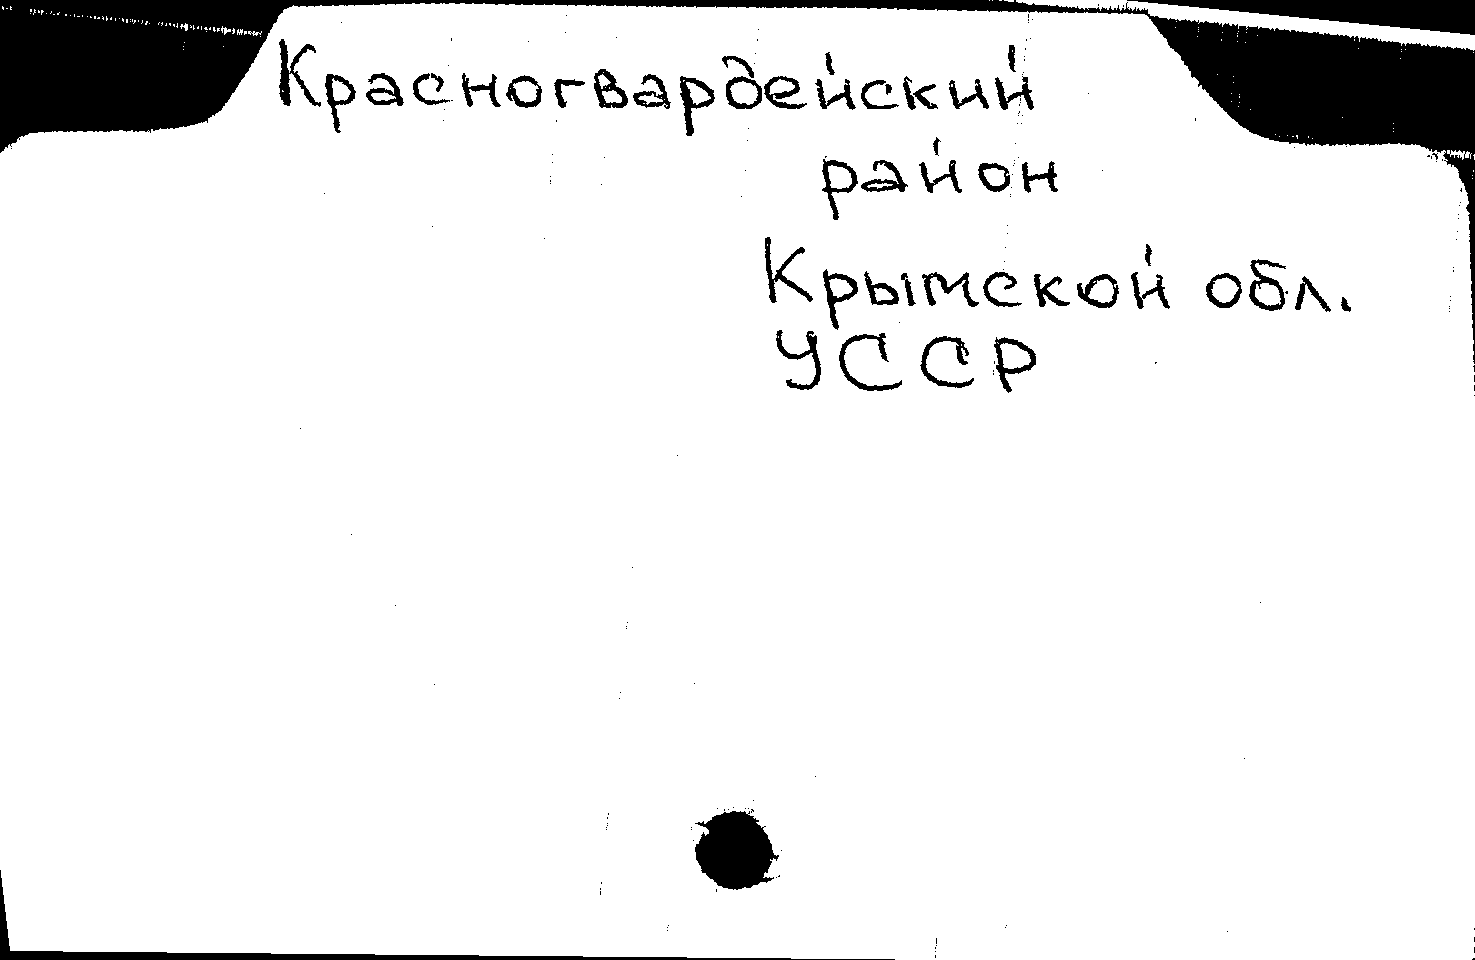 Красногвардейский
район
Крымской обл.
УССР